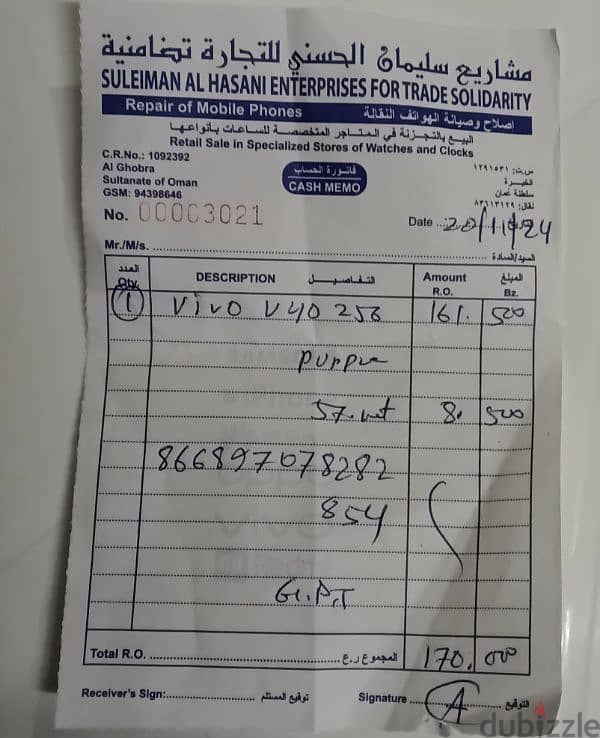 مشاريع سليمان الحسني للتجارة تضامنية
SULEIMAN AL HASANI ENTERPRISES FOR TRADE SOLIDARITY
Repair of Mobile Phones اصلاح وصيانة الهواتف النقالة
البيع بالتجزئة في المتاجر المتخصصة للساعات بأنواعها
Retail Sale in Specialized Stores of Watches and Clocks
C.R.No.: 1092392
Al Ghobra
Sultanate of Oman
GSM: 94398646
فاتورة الحساب
CASH MEMO
س.ت:
سلطنة عمان
نقال:
No. 00003021
Date 20/11/24
Mr./M/s. السيد/السادة
العدد DESCRIPTION التفاصيل Amount المبلغ
Qty. R.O. Bz.
1 Vivo V40 256 161. 500
purple
5%. vat 8. 500
866897078282
854
G.P.T
Total R.O. المجموع ر.ع. 170. 00
Receiver's Sign: توقيع المستلم Signature التوقيع
dubizzle